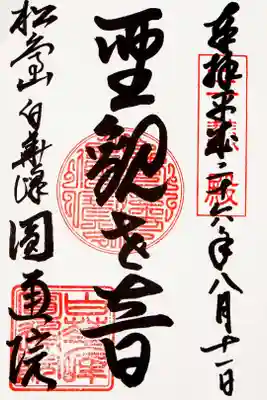 奉拝 平成二十六年八月十一日
聖観世音
松島 白華峰 圓通院